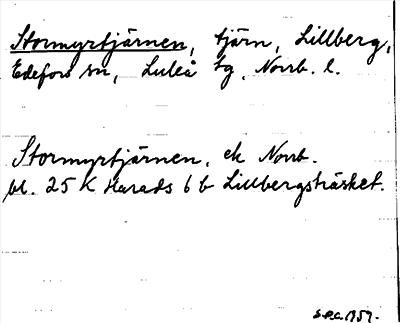 Stormyrtjärnen, tjärn, Lillberg,
Edefors sn, Luleå tg, Norrb. l.
Stormyrtjärnen, ek Norrb.
bl. 25 K Harads 6 b Lillbergsträsket.
S.P.C. 1959.